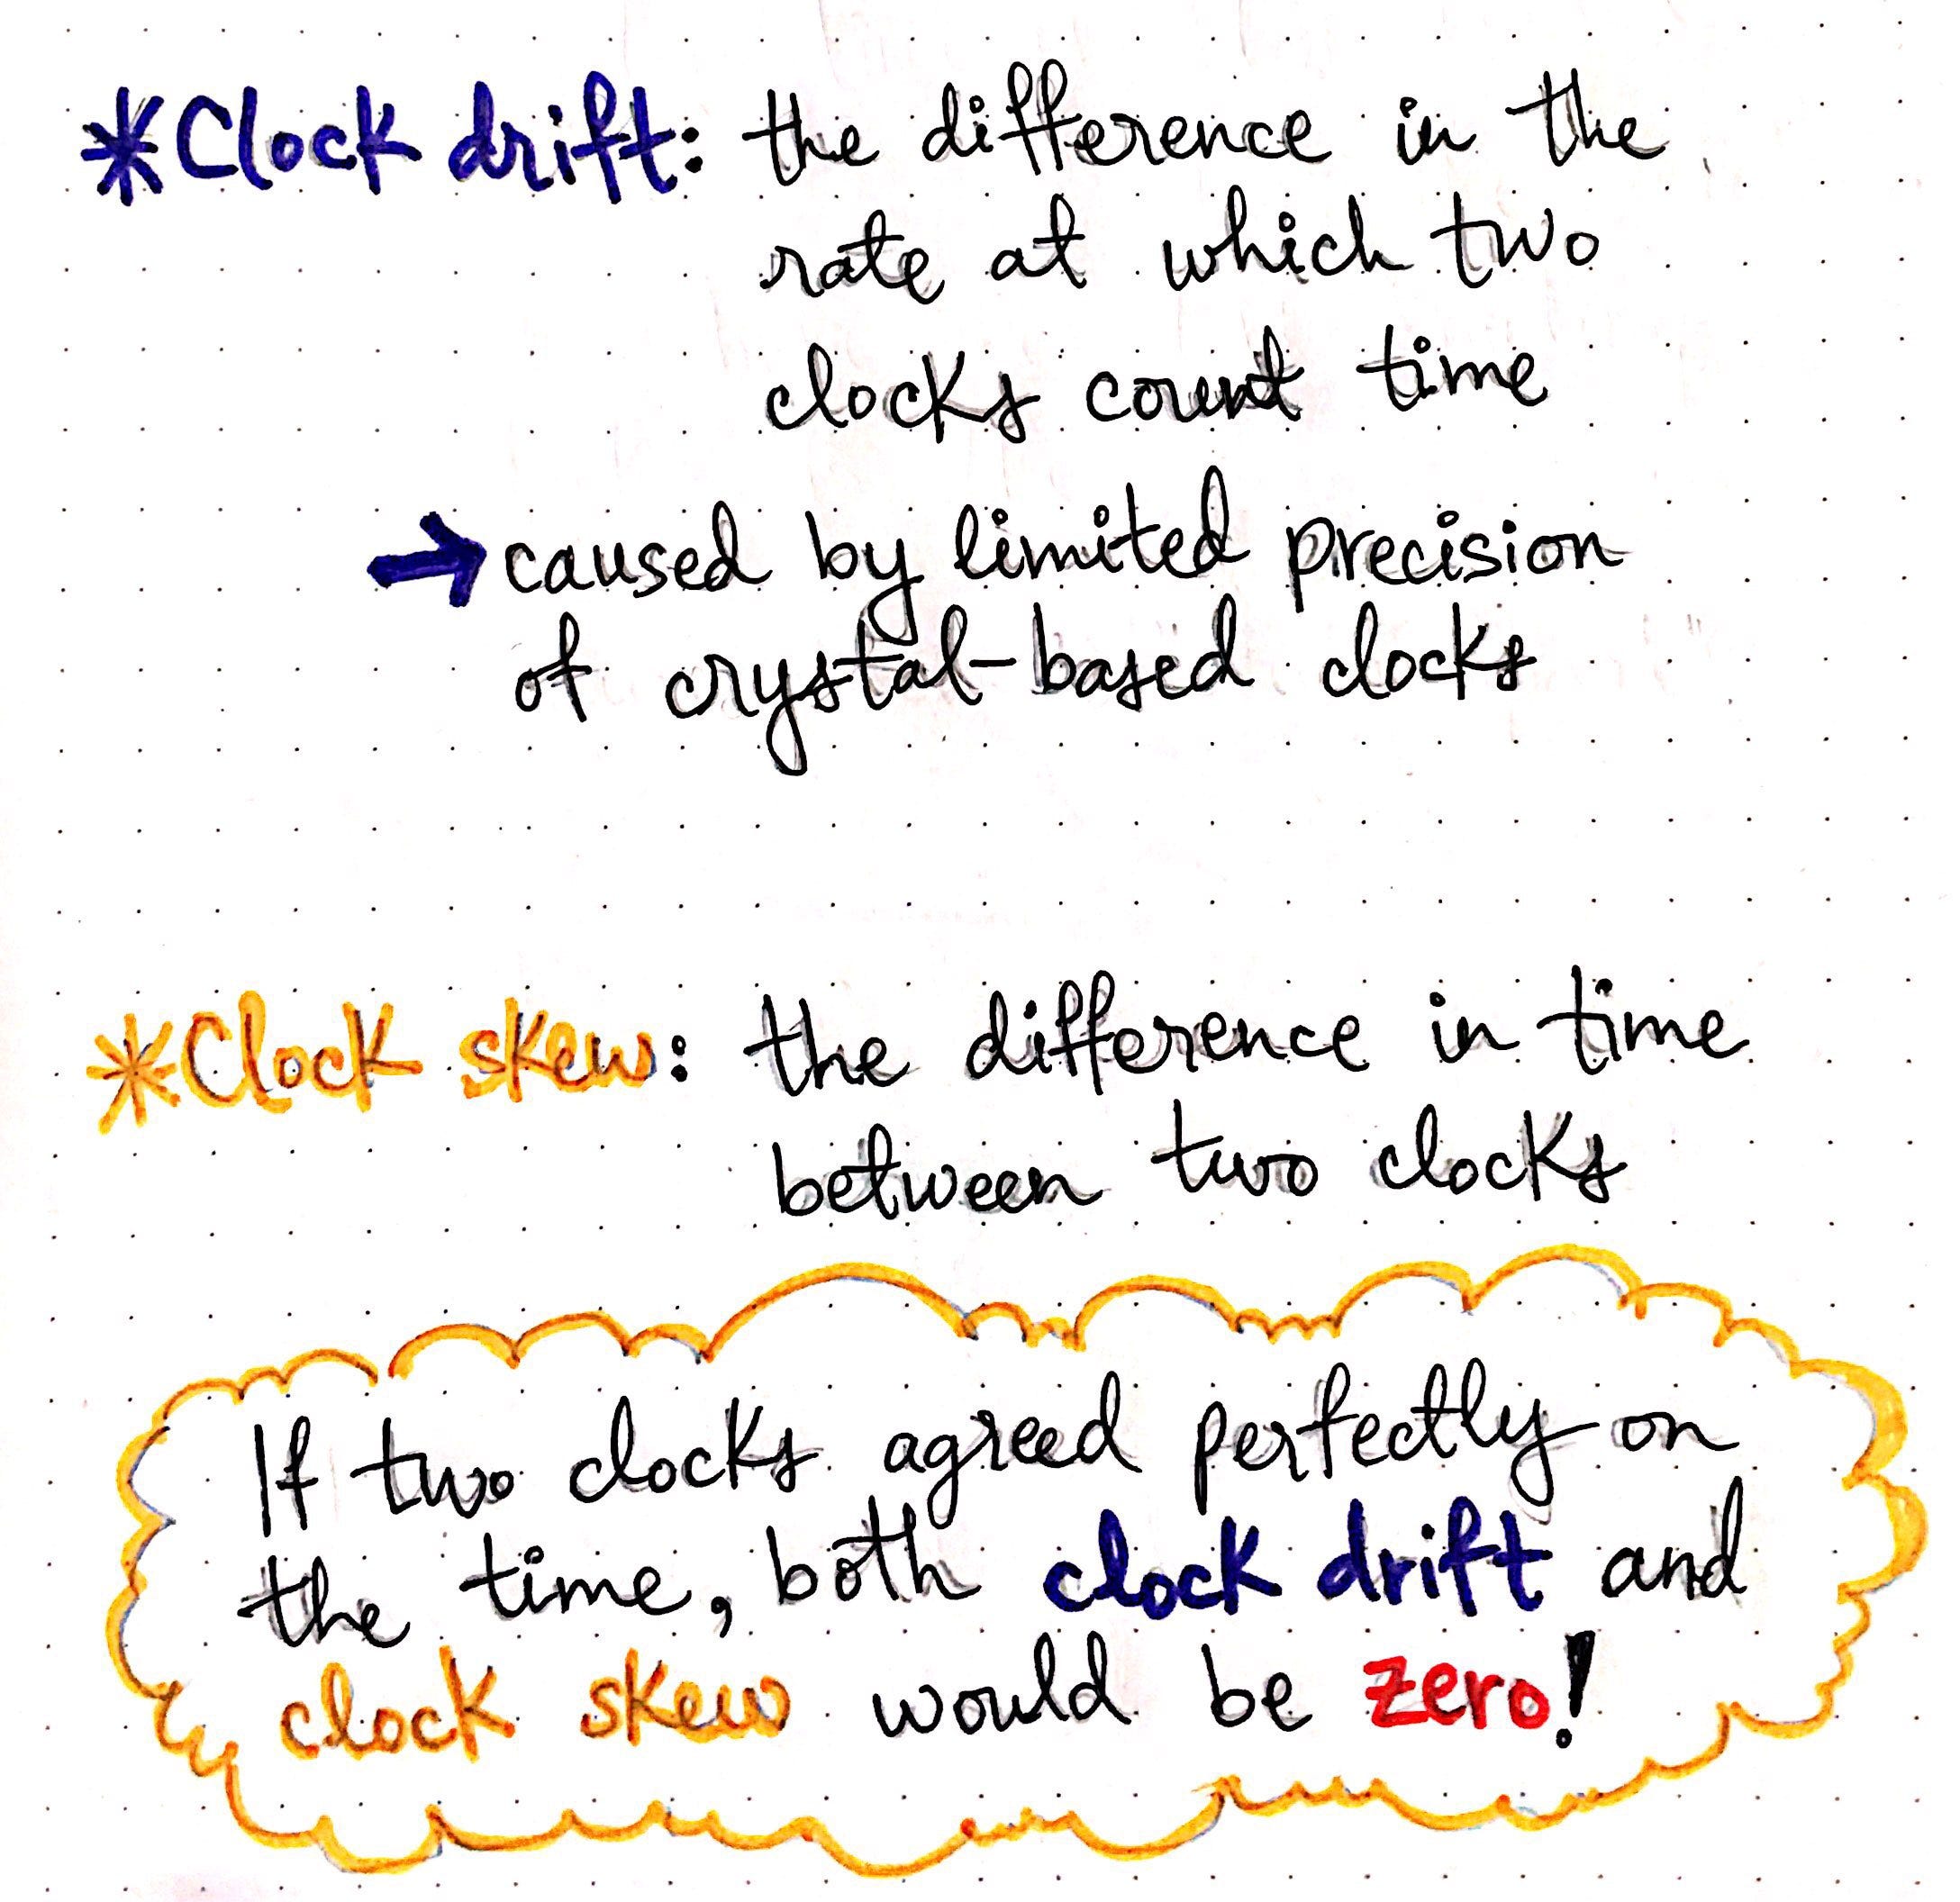 *Clock drift: the difference in the
rate at which two
clocks count time
→ caused by limited precision
of crystal-based clocks
*Clock skew: the difference in time
between two clocks
If two clocks agreed perfectly on
the time, both clock drift and
clock skew would be zero!